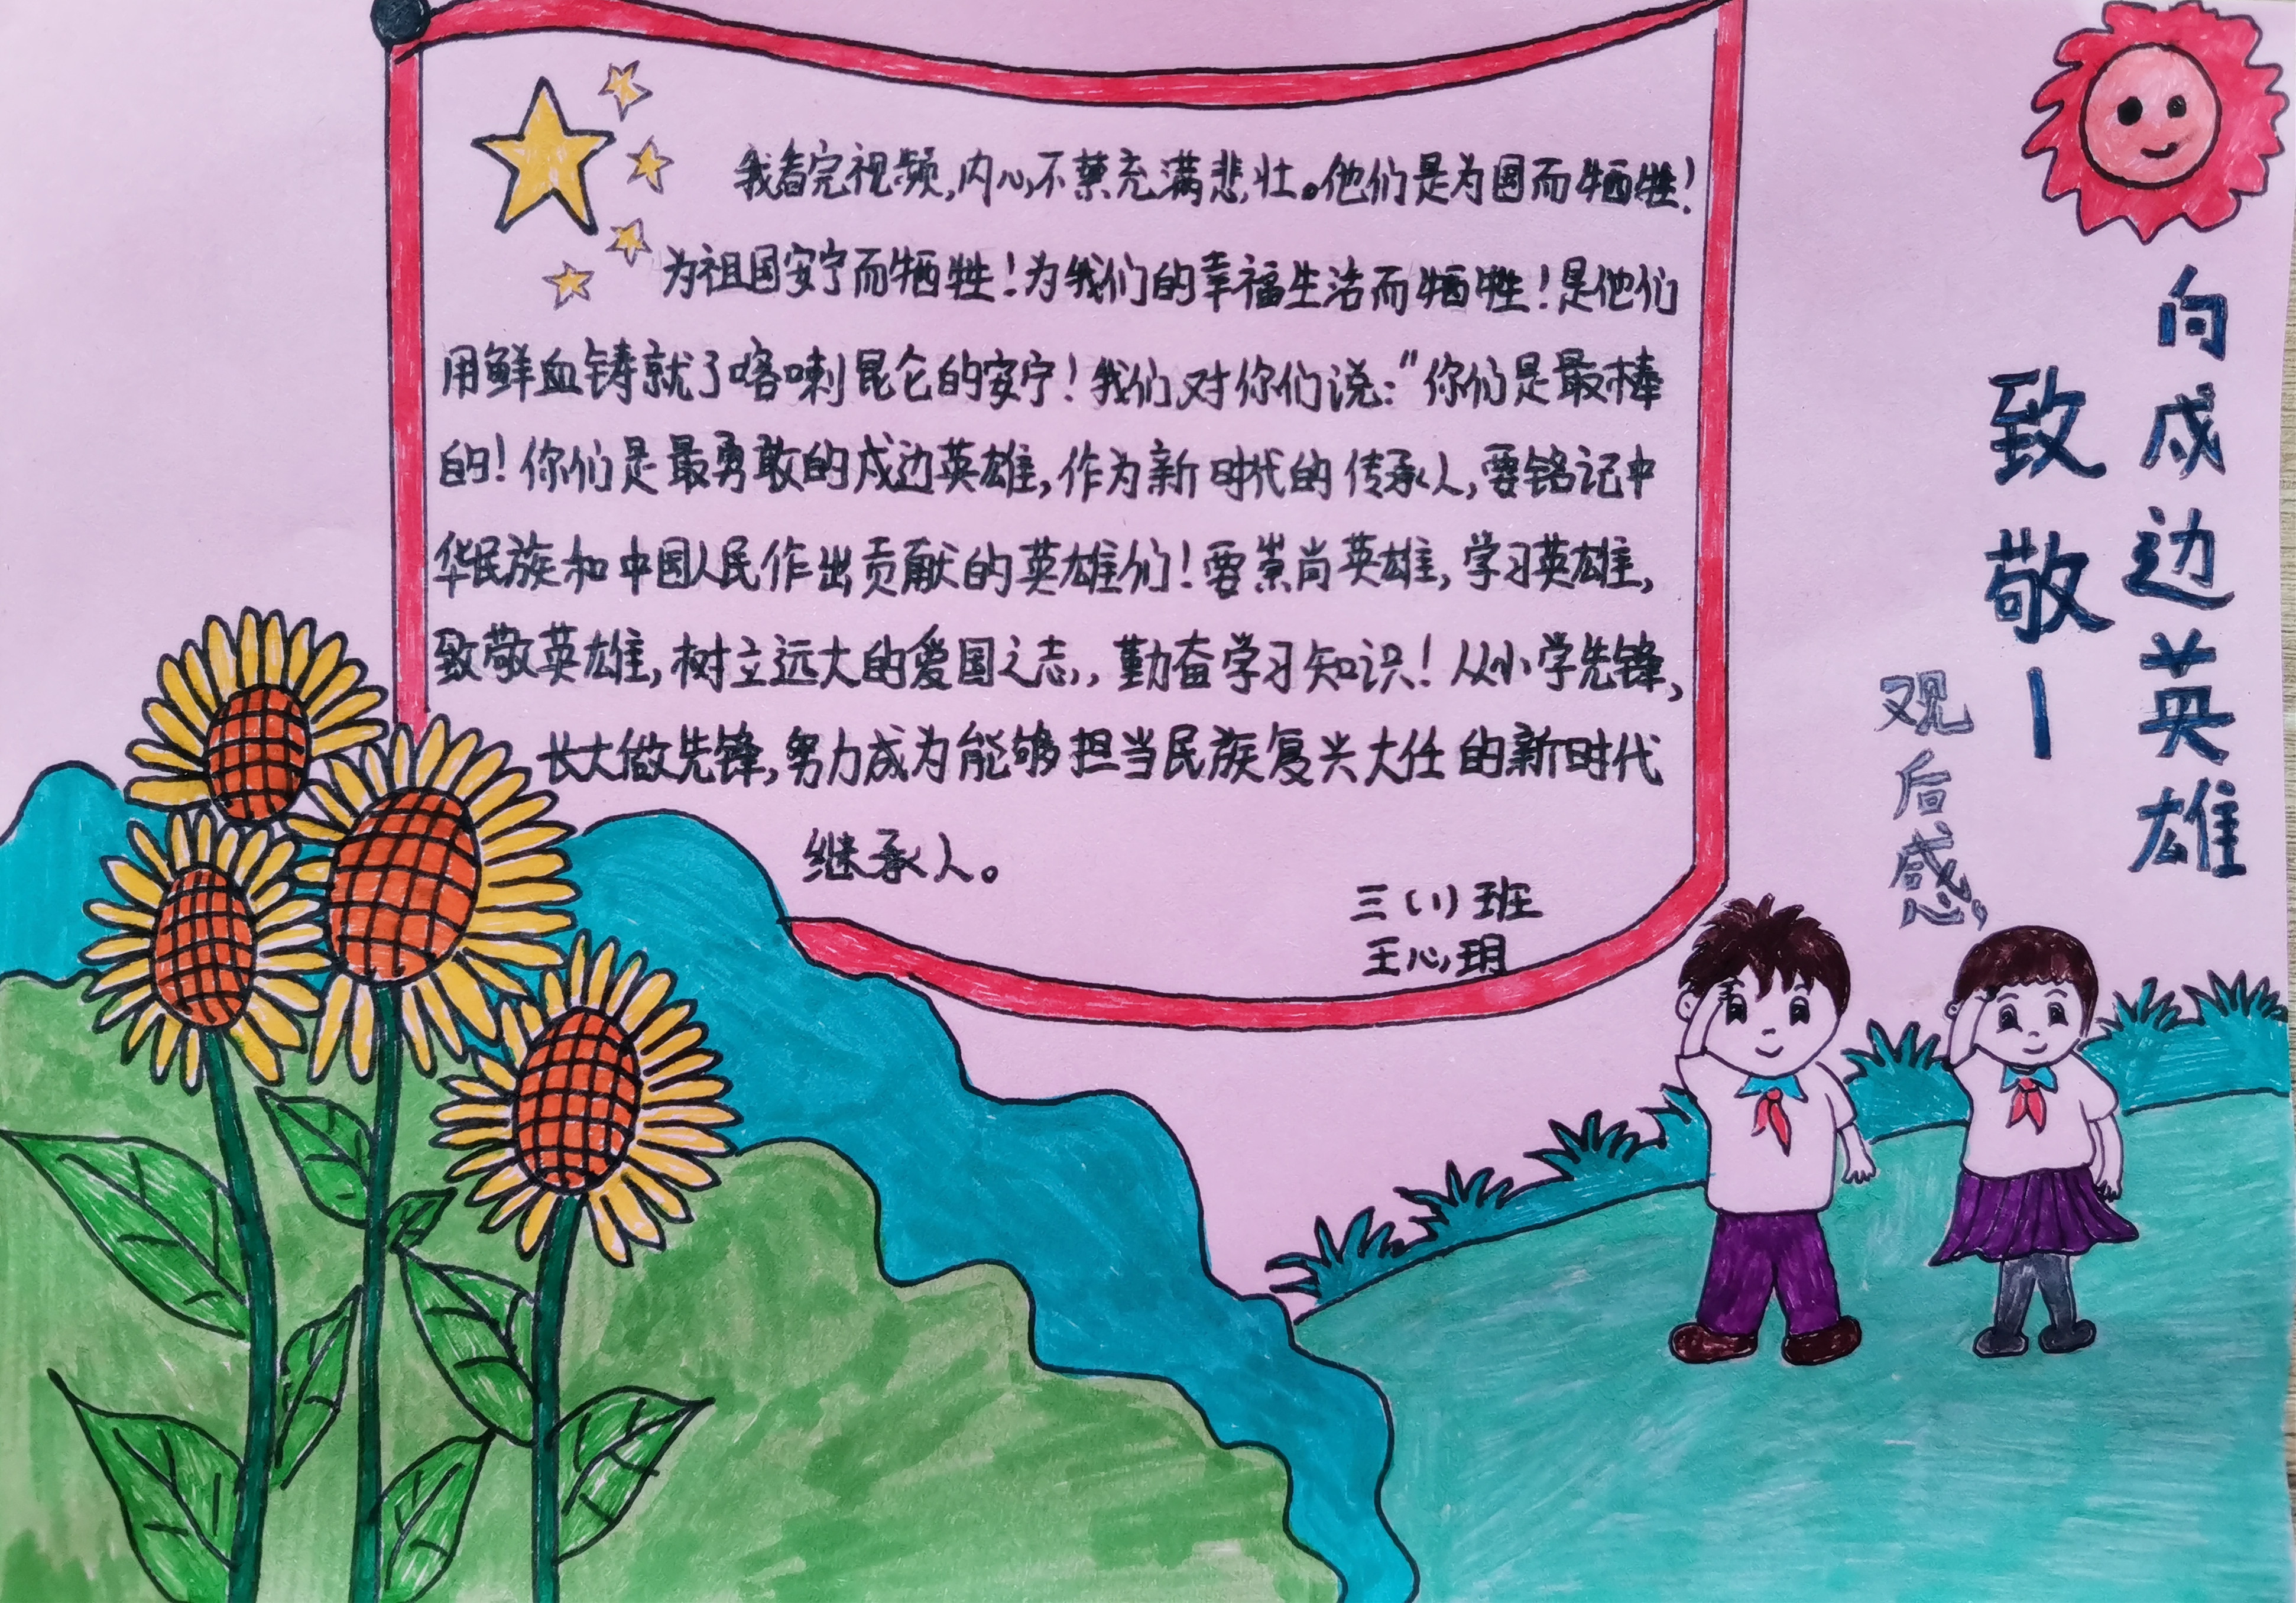 向戍边英雄
致敬—
观后感
我看完视频,内心不禁充满悲壮。他们是为国而牺牲!
为祖国安宁而牺牲!为我们的幸福生活而牺牲!是他们
用鲜血铸就了喀喇昆仑的安宁!我们对你们说:“你们是最棒
的!你们是最勇敢的戍边英雄,作为新时代的传承人,要铭记中
华民族和中国人民作出贡献的英雄们!要崇尚英雄,学习英雄,
致敬英雄,树立远大的爱国之志,勤奋学习知识!从小学先锋,
长大做先锋,努力成为能够担当民族复兴大任的新时代
继承人。
三(1)班
王心玥